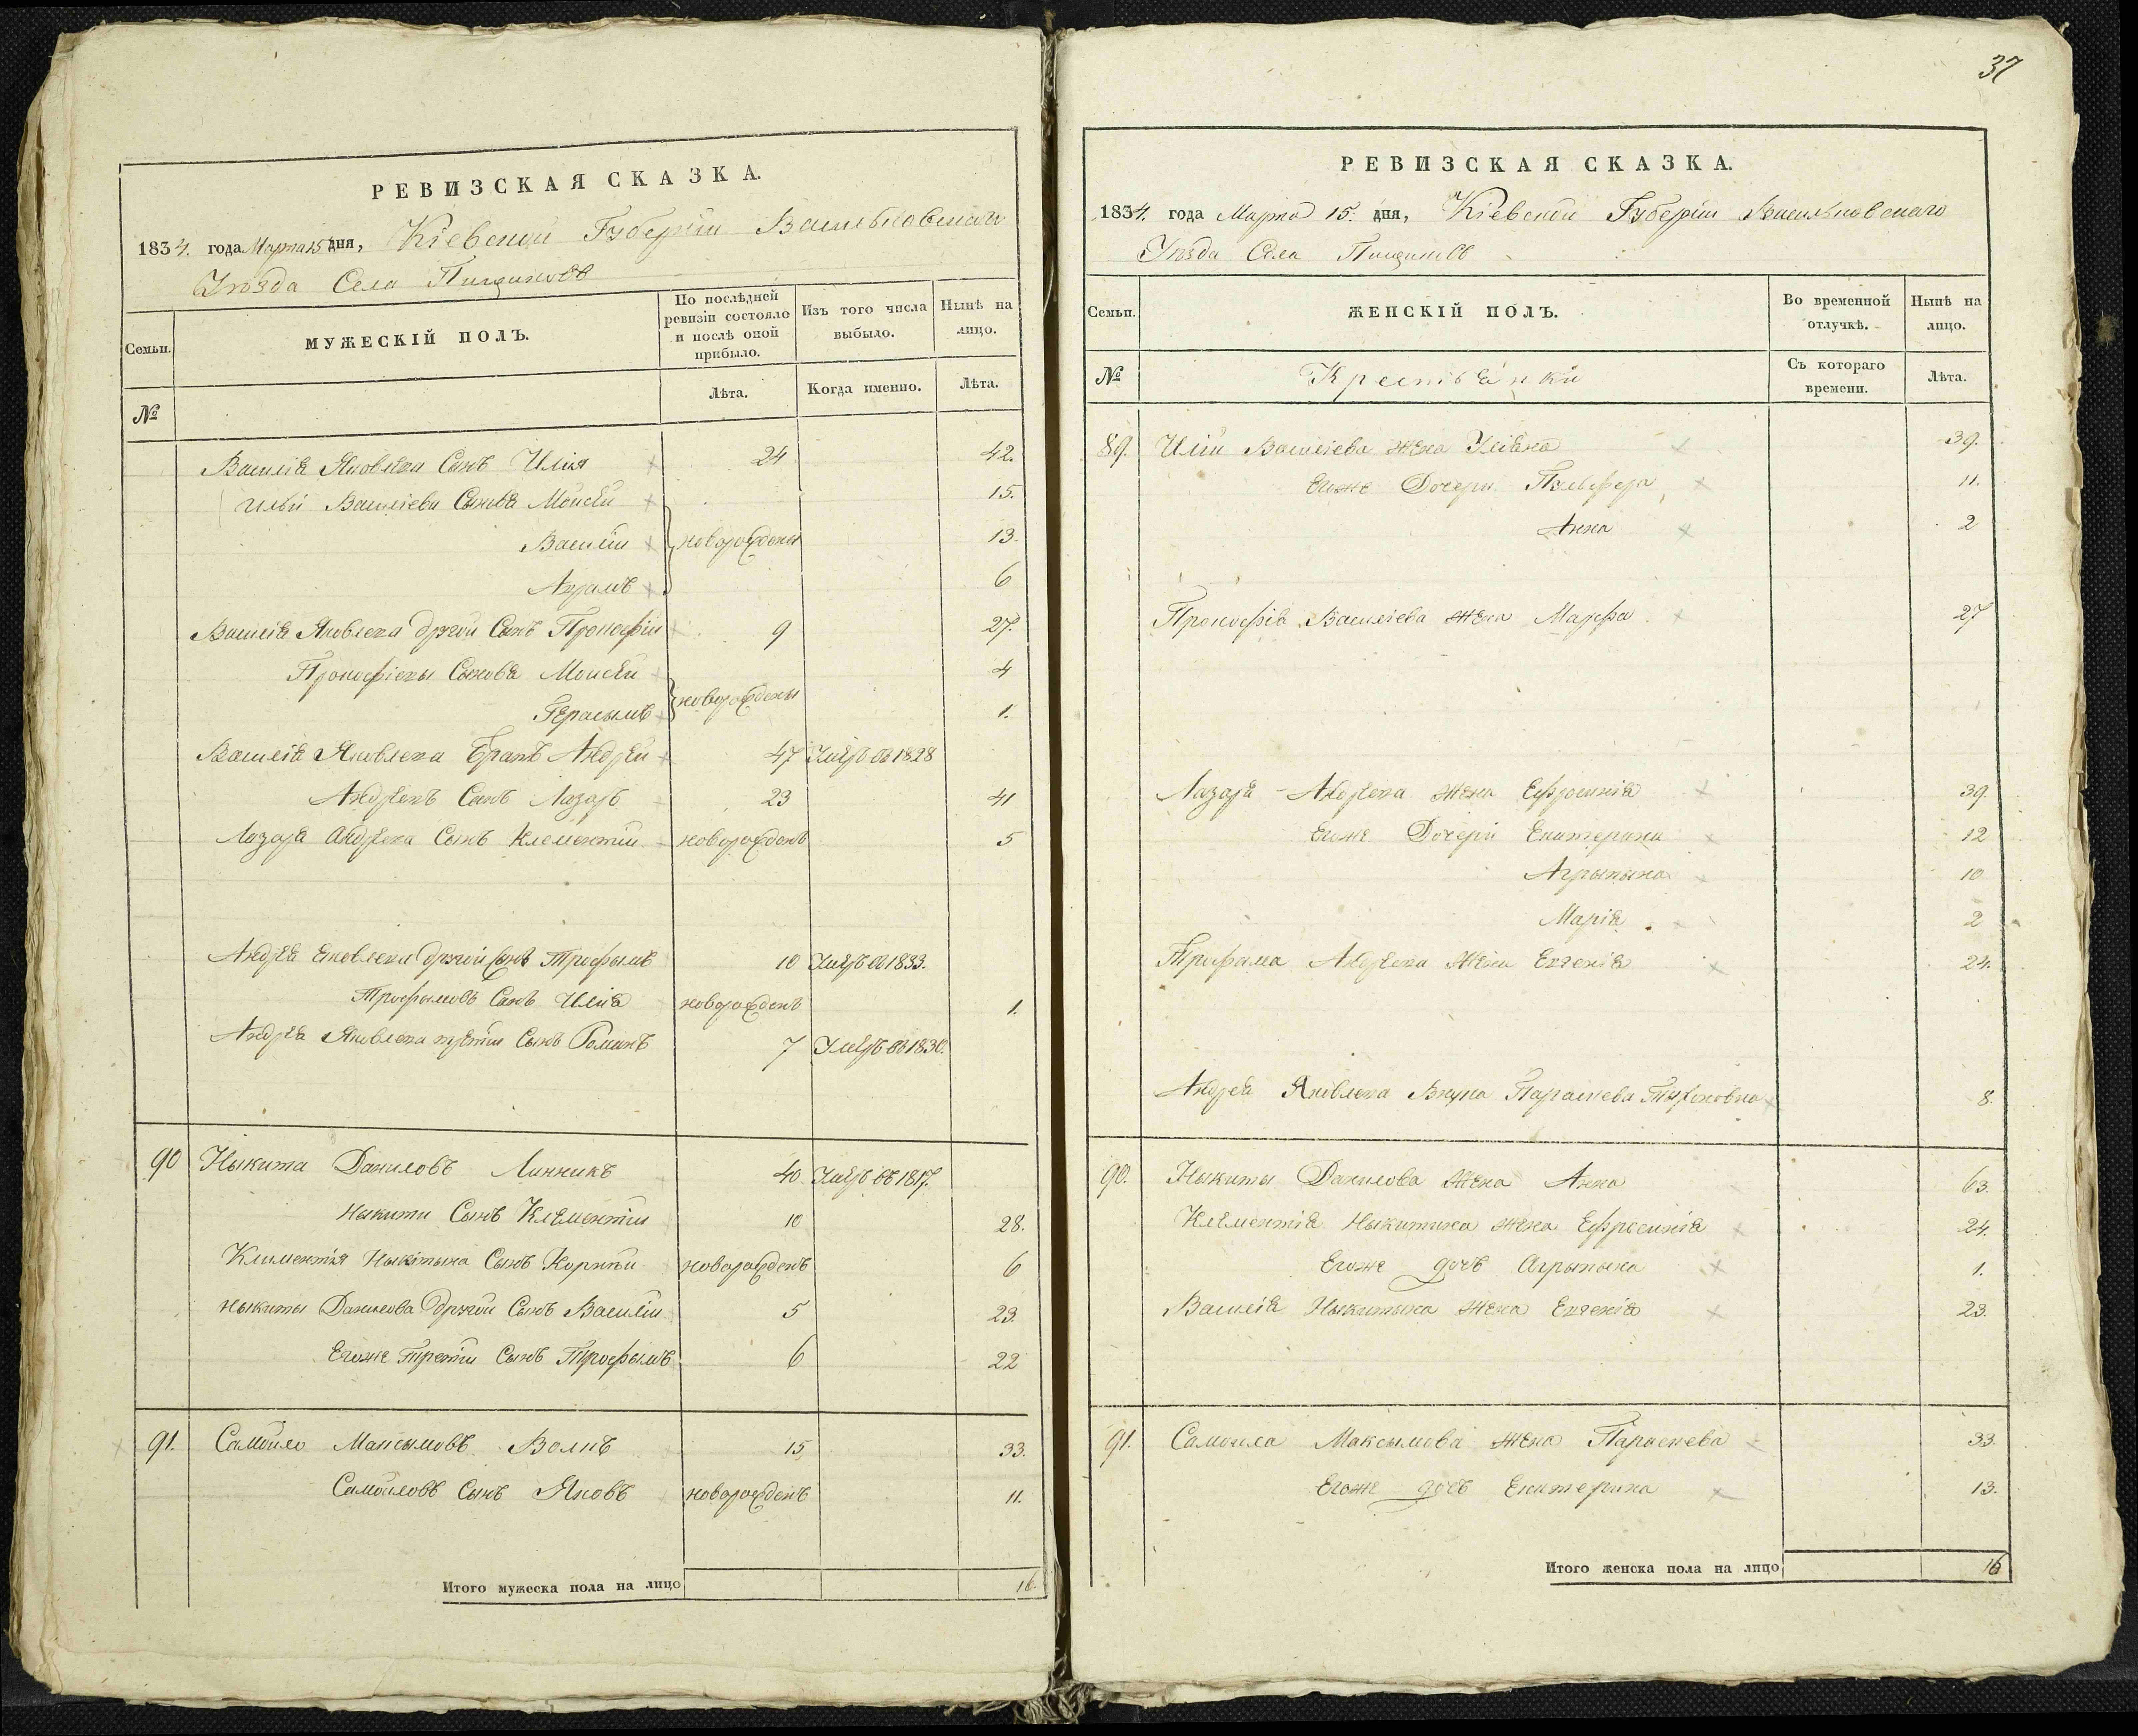 РЕВИЗСКАЯ СКАЗКА.
1834. года Марта 15 дня, Кіевской Губерніи Васильковскаго
Уѣзда Села Пищиковъ
Семьи.
МУЖЕСКІЙ ПОЛЪ.
По послѣдней ревизіи состояло и послѣ оной прибыло.
Изъ того числа выбыло.
Нынѣ на лицо.
№
Лѣта.
Когда именно.
Лѣта.
Василія Яковлева Сынъ Илія 24 42.
Иліи Василіеви Сыновя Мойсей 15.
Василій новорождены 13.
Адамъ 6
Василія Яковлева другой Сынъ Прокофій 9 27.
Прокофіевы Сыновя Мойсей 4
Герасымъ новорождены 1.
Василія Яковлева Братъ Андрей 47 Умеръ въ 1828
Андреевъ Сынъ Лазарь 23 41
Лазаря Андреева Сынъ Клементій новорожденъ 5
Андрея Яковлева другой Сынъ Трофымъ 10 Умеръ въ 1833.
Трофымовъ Сынъ Илія новорожденъ 1.
Андрея Яковлева третій Сынъ Романъ 7 Умеръ въ 1830.
90 Ныкита Даниловъ Линникъ 40 Умеръ въ 1817.
Ныкиты Сынъ Клементій 10 28.
Климентія Ныкитына Сынъ Корній новорожденъ 6
Ныкиты Данилова другой Сынъ Василій 5 23.
Егоже Третій Сынъ Трофымъ 6 22
91. Самойло Максымовъ Волкъ 15 33.
Самойловъ Сынъ Яковъ новорожденъ 11.
Итого мужеска пола на лицо 16.
37
РЕВИЗСКАЯ СКАЗКА.
1834. года Марта 15. дня, Кіевской Губерніи Васильковскаго
Уѣзда Села Пищиковъ
Семьи.
ЖЕНСКІЙ ПОЛЪ.
Во временной отлучкѣ.
Нынѣ на лицо.
№
Крестьянки
Съ котораго времени.
Лѣта.
89. Иліи Василіева жена Уліяна 39.
Егоже Дочери 11.
Анна 2
Прокофія Василіева жена Марфа 27
Лазаря Андреева жена Ефросинія 39.
Егоже Дочери Екатерина 12
Агрыпына 10
Марія 2
Трофыма Андреева жена Евгенія 24.
Андрея Яковлева Внука Параскева 8.
90. Ныкиты Данилова жена Анна 63.
Клементія Ныкитына жена Ефросинія 24.
Егоже дочъ Агрыпына 1.
Василія Ныкитына жена Евгенія 23.
91. Самойла Максымова жена Параскева 33.
Егоже дочъ Екатерина 13.
Итого женска пола на лицо 16